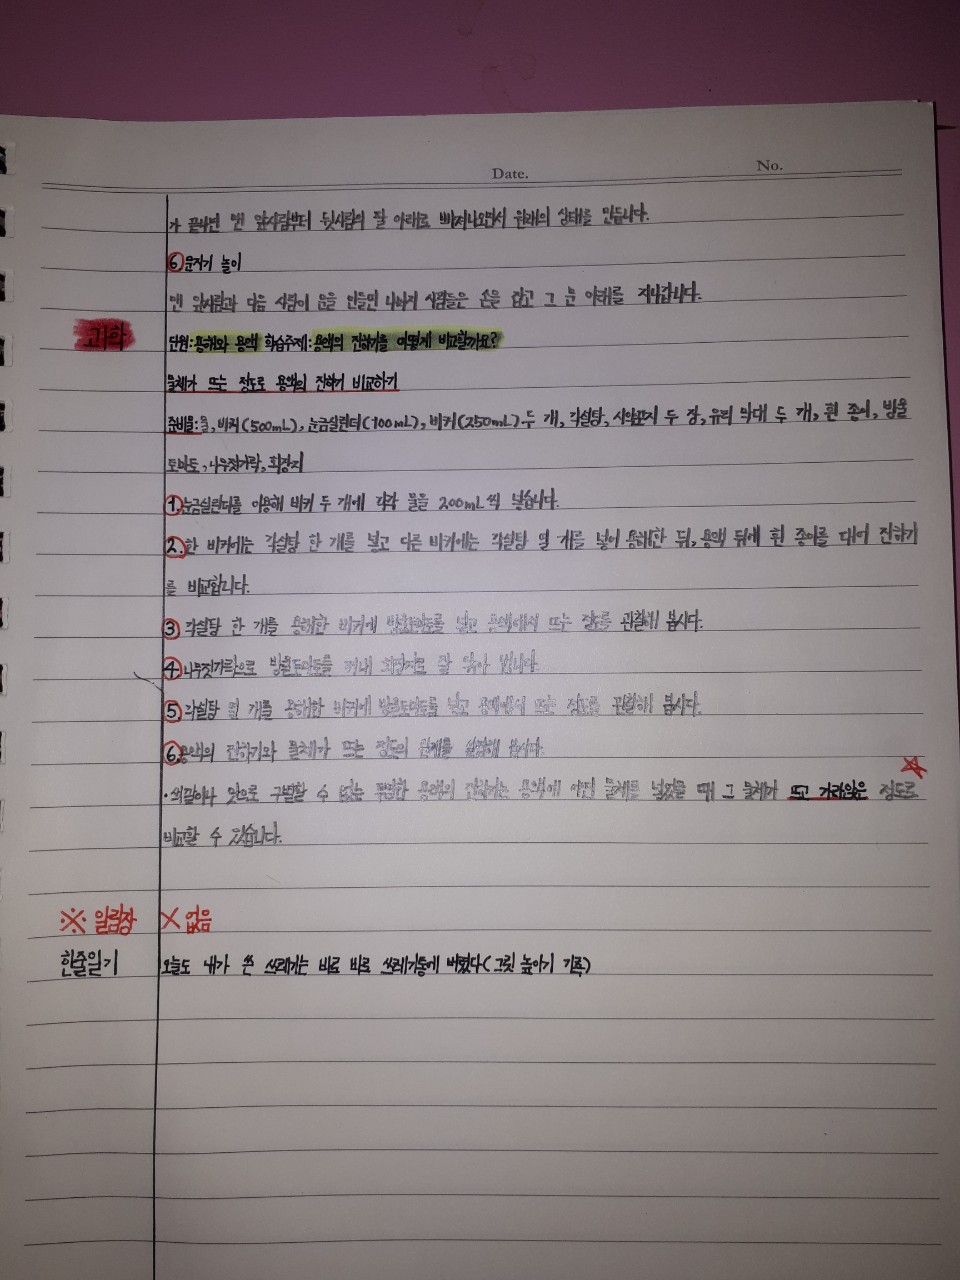 Date.
No.
가 끝나면 맨 앞사람부터 뒷사람의 팔 아래로 빠져나오면서 원래의 상태를 만듭니다.
⑥문지기 놀이
맨 앞사람과 다음 사람이 문을 만들면 나머지 사람들은 손을 잡고 그 문 아래를 지나갑니다.
과학
단원:용해와 용액 학습주제:용액의 진하기를 어떻게 비교할까요?
물체가 뜨는 정도로 용액의 진하기 비교하기
준비물:물, 비커(500mL), 눈금실린더(100mL), 비커(250mL) 두 개, 각설탕, 시약포지 두 장, 유리 막대 두 개, 흰 종이, 방울
토마토, 나무젓가락, 화장지
①눈금실린더를 이용해 비커 두 개에 각각 물을 200mL씩 넣습니다.
②한 비커에는 각설탕 한 개를 넣고 다른 비커에는 각설탕 열 개를 넣어 용해한 뒤, 용액 뒤에 흰 종이를 대어 진하기
를 비교합니다.
③각설탕 한 개를 용해한 비커에 방울토마토를 넣고 용액에서 뜨는 정도를 관찰해 봅시다.
④나무젓가락으로 방울토마토를 꺼내 화장지로 잘 닦아 냅니다.
⑤각설탕 열 개를 용해한 비커에 방울토마토를 넣고 용액에서 뜨는 정도를 관찰해 봅시다.
⑥용액의 진하기와 물체가 뜨는 정도의 관계를 설명해 봅시다.
·색깔이나 맛으로 구별할 수 없는 투명한 용액의 진하기는 용액에 어떤 물체를 넣었을 때 그 물체가 뜨고 가라앉은 정도로
비교할 수 있습니다.
※ 알림장 X 없음
한줄일기 오늘도 내가 쓴 쓰레기는 바로 바로 쓰레기통에 버렸다(그릿 높이기 기록)